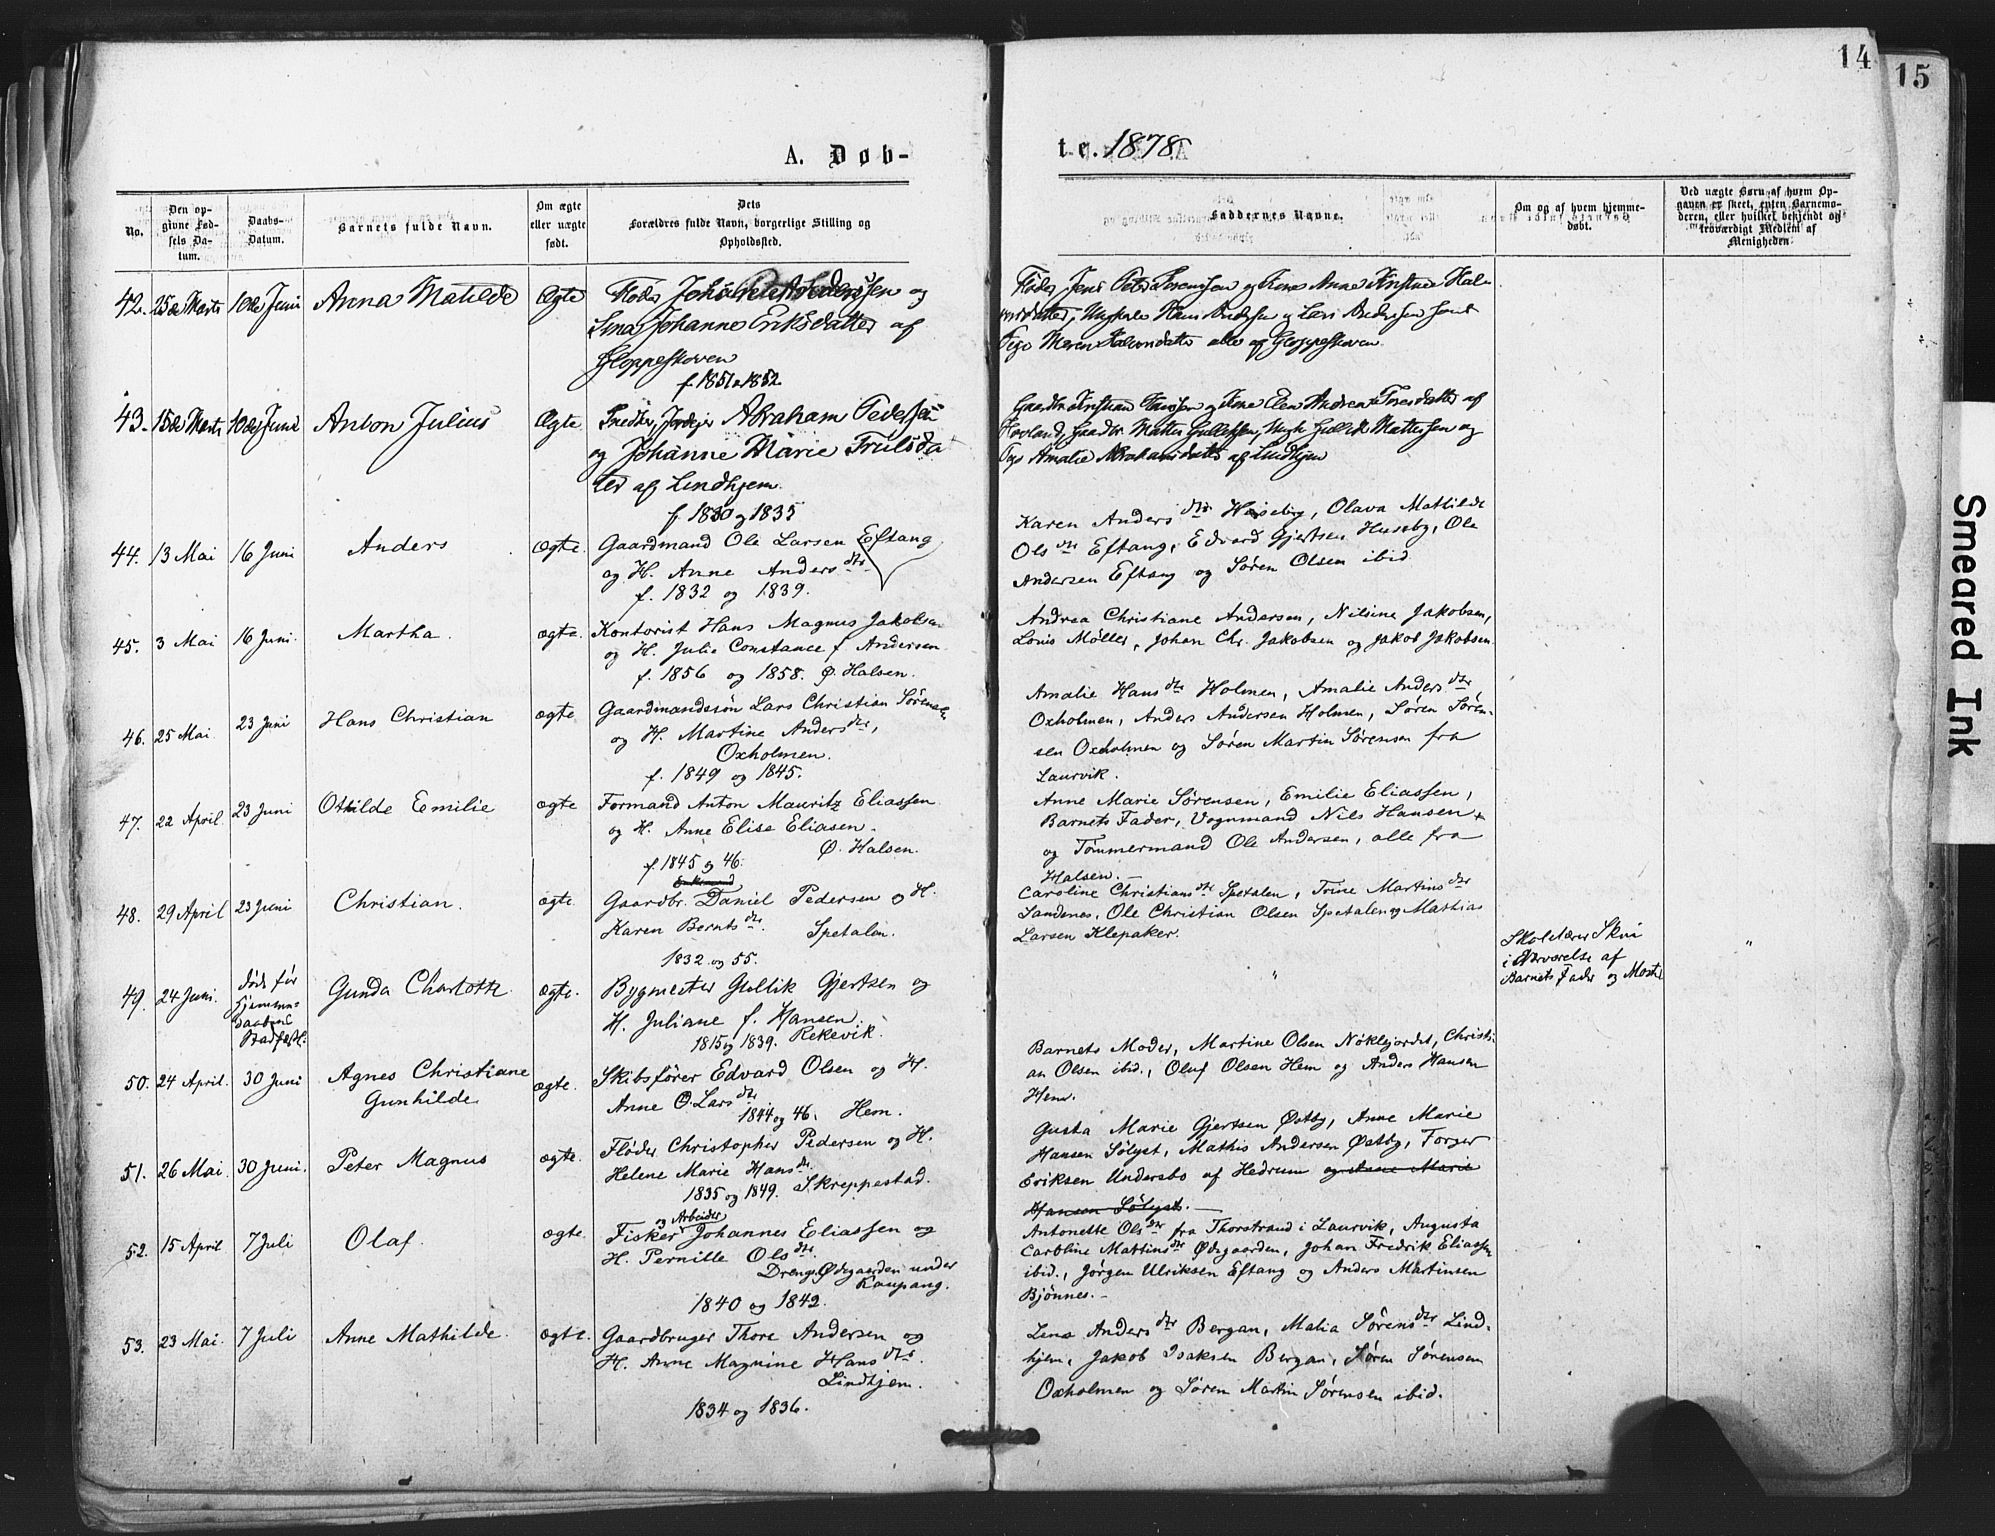 14
15
A. Døb-
te. 1878.
No.
Den op-
givne Fød-
sels Da-
tum.
Daabs-
Datum.
Barnets fulde Navn.
Om ægte
eller uægte
født.
Dets
Forældres fulde Navn, borgerlige Stilling og
Opholdssted.
Faddernes Navne.
Om og af hvem hjemme-
døbt.
Ved uægte Børn af hvem Op-
gaven er skeet, enten Barnemo-
deren, eller hvilket bekjendt og
troværdigt Medlem af
Menigheden.
42. 25de Marts 10de Juni Anna Matilde Ægte
og
Lina Johanne Eriksdatter af
Gloppeskoven
f. 1851 & 1852
Fløder Jens Peter og Kone Anne
Hans Andersen og Lars Andersen samt
Pige Maren alle af Gloppeskoven.
43. 15de Marts 10de Juni Anton Julius Ægte
Smeder, Abraham Pedersen
og Johanne Marie Trulsdat
ter af Lindhjem.
f. 1830 og 1835
Kristian Hanssen og Kone Elen Andrea Toresdatter af
Hovland, Gaardbr. Mattis Gulliksen, Ungk. Gullik Mattissen og
Pige Amalie Abrahamsdatter af Lindhjem
44. 13 Mai 16 Juni Anders ægte.
Gaardmand Ole Larsen Eftang
og H. Anne Andersdtr
f. 1832 og 1839.
Karen Andersdtr Huseby, Olava Mathilde
Olsdtr Eftang, Edvard Gjertsen Huseby, Ole
Andersen Eftang og Søren Olsen ibid.
45. 3 Mai 16 Juni. Martha. ægte.
Kontorist Hans Magnus Jakobsen
og H. Julie Constance f. Andersen
f. 1856 og 1858. Ø. Halsen.
Andrea Christiane Andersen, Nilsine Jakobsen,
Louis Møller, Johan Chr. Jakobsen og Jakob Jakobsen.
46. 25 Mai. 23 Juni Hans Christian ægte
Gaardmandssøn Lars Christian Sørensen
og H. Martine Andersdtr,
Oxholmen.
f. 1849 og 1845.
Amalie Hansdtr Holmen, Amalie Andersdtr
Oxholmen, Anders Andersen Holmen, Søren Søren-
sen Oxholmen og Søren Martin Sørensen fra
Laurvik.
47. 22 April. 23 Juni Othilde Emilie ægte
Formand Anton Mauritz Eliassen
og H. Anne Elise Eliasen.
Ø. Halsen.
f. 1845 og 46.
Anne Marie Sørensen, Emilie Eliassen,
Barnets Fader, Vognmand Nils Hansen
og Tømmermand Ole Andersen, alle fra
Halsen.
48. 29 April 23 Juni Christian. ægte
Enkemand
Gaardbr. Daniel Pedersen og H.
Karen Berntsdtr. Spetalen.
1832 og 55.
Caroline Christiansdtr Spetalen, Tomine Martinsdtr
Sandenes, Ole Christian Olsen Spetalen og Mathias
Larsen Klepaker.
49. 24 Juni. Døde før
Hjemme-
daabens
Stadfæst.
Gunda Charlotte ægte.
Bygmester Gullik Gjertsen og
H. Juliane f. Hansen.
1815 og 1839. Rekevik.
"
Skolelærer Skui
i Overværelse af
Barnets Fader og Moster
"
50. 24 April. 30 Juni Agnes Christiane
Gunhilde ægte.
Skibsfører Edvard Olsen og H.
Anne O. Larsdtr
1844 og 46. Hem.
Barnets Moder, Martine Olsen Nøklejordet, Christi-
an Olsen ibid., Oluf Olsen Hem og Anders Hansen
Hem.
51. 26 Mai. 30 Juni. Peter Magnus ægte.
Fløder Christopher Pedersen og H.
Helene Marie Hansdtr
1835 og 1849. Skreppestad.
Gusta Marie Gjertsen Østby, Anne Marie
Hansen Sølyst, Mathis Andersen Østby, Torger
Eriksen Undersbo af Hedrum og Anne Marie
Hansen Sølyst.
52. 15 April 7 Juli Olaf. ægte.
og Arbeider
Fisker Johannes Eliassen og
H. Pernille Olsdtr.
Dreng. Ødegaarden under
Kaupang.
1840 og 1842.
Antonette Olsdtr fra Thorstrand i Laurvik, Augusta
Caroline Mattinsdtr Ødegaarden, Johan Fredrik Eliassen
ibid., Jørgen Ulriksen Eftang og Anders Martinsen
Bjønnes.
53. 23 Mai. 7 Juli Anne Mathilde. ægte.
Gaardbruger Thore Andersen og
H. Anne Magnine Hansdtr.
Lindhjem.
1834 og 1836.
Lina Andersdtr Bergan, Malia Sørensdtr Lind-
hjem, Jakob Isaksen Bergan, Søren Sørensen
Oxholmen og Søren Martin Sørensen ibid.
Smeared Ink